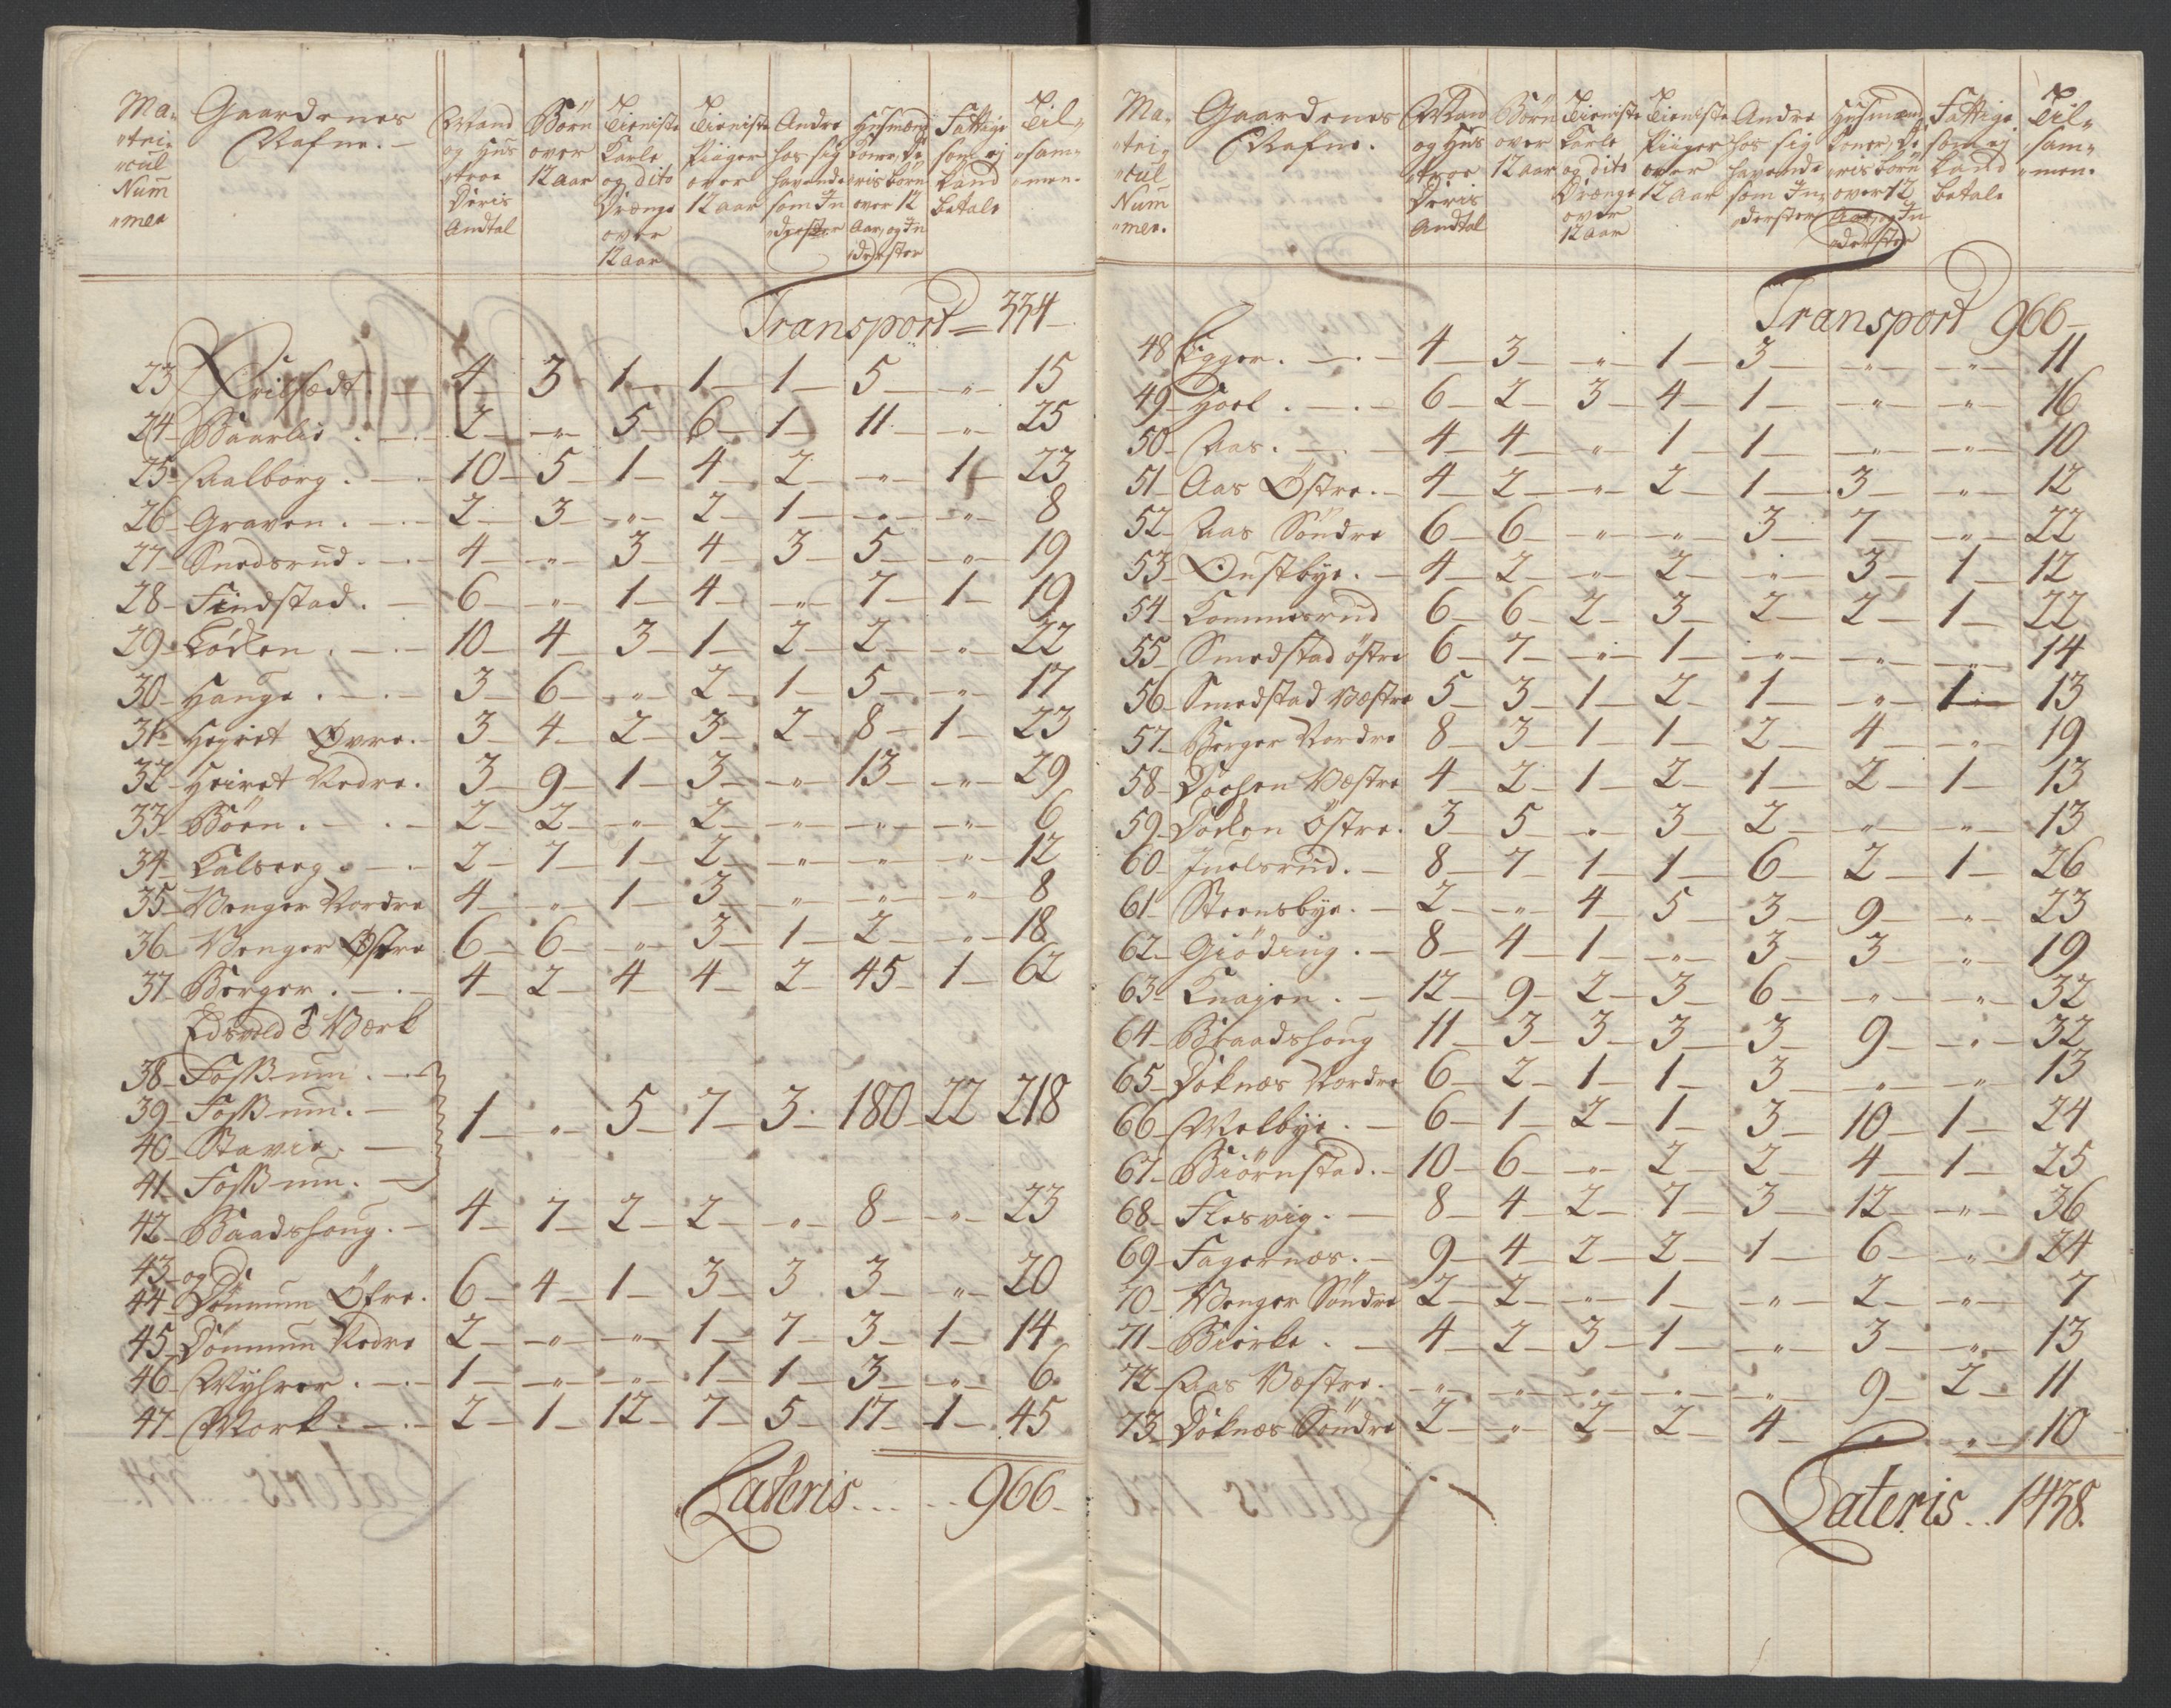 Ma= Gaardenes Mand Börn Tieniste Tieniste Andre Husmænd Fattige Til=
"tri= Nafne. og Hus over Karle Piiger hos sig Koner, De som ej "sam=
"cul troe 12 aar og dito over havende ris börn kand "men.
Num Deris Drænge 12 aar som In over 12 betale
"mer Andtal over derster Aar, og In
12 aar derster
Transport = 334
23 Erilsædt 4 3 1 1 1 5 " 15
24 Baarlie 2 " 5 6 1 11 " 25
25 Aalborg 10 5 1 4 2 " 1 23
26 Graven 2 3 " 2 1 " " 8
27 Snedsrud 4 " 3 4 3 5 " 19
28 Findstad 6 " 1 4 " 7 1 19
29 Løken 10 4 3 1 2 2 " 22
30 Hauge 3 6 " 2 1 5 " 17
31 Hegret Øvre 3 4 2 3 2 8 1 23
32 Heiret Nedre 3 9 1 3 " 13 " 29
33 Börn 2 2 " 2 " " " 6
34 Kalseeg 2 7 1 2 " " " 12
35 Venger Nordre 4 " 1 3 " " " 8
36 Venger Østre 6 6 " 3 1 2 " 18
37 Berger 4 2 4 4 2 45 1 62
Edsvold Værk
38 Fossum
39 Fossum 1 " 5 7 3 180 22 218
40 Stavie
41 Fossum
42 Baadshoug 4 7 2 2 " 8 " 23
43 og
44 Dönnum Öfre 6 4 1 3 3 3 " 20
45 Dönnum Nedre 2 " " 1 7 3 1 14
46 Myhrer 1 " " 1 1 3 " 6
47 Mork 2 1 12 7 5 17 1 45
Lateris 966
Ma= Gaardenes Mand Börn Tieniste Tieniste Andre Husmænd Fattige Til=
"tri= Nafne. og Hus over Karle Piiger hos sig Koner, De som ej "sam=
"cul troe 12 aar og dito over havende ris börn kand "men.
Num Deris Drænge 12 aar som In over 12 betale
"mer. Andtal over derster Aar, og In
12 aar derster
Transport 966
48 Egger 4 3 " 1 3 " " 11
49 Hoel 6 2 3 4 1 " " 16
50 Aas 4 4 " 1 1 " " 10
51 Aas Östre 4 2 " 2 1 3 " 12
52 Aas Söndre 6 6 " " 3 7 " 22
53 Ønstbye 4 2 " 2 " 3 1 12
54 Kommesrud 6 6 2 3 2 2 1 22
55 Smedstad östre 6 7 " 1 " " " 14
56 Smedstad Væstre 5 3 1 2 1 " 1 13
57 Berger Nordre 8 3 1 1 2 4 " 19
58 Döchen Væstre 4 2 1 2 1 2 1 13
59 Döcken Östre 3 5 " 3 2 " " 13
60 Juelsrud 8 7 1 1 6 2 1 26
61 Steensbye 2 " 4 5 3 9 " 23
62 Giöding 8 4 1 " 3 3 " 19
63 Knajen 12 9 2 3 6 " " 32
64 Braadshoug 11 3 3 3 3 9 " 32
65 Doknæs Nordre 6 2 1 1 3 " " 13
66 Melbye 6 1 2 1 3 10 1 24
67 Biörnstad 10 6 " 2 2 4 1 25
68 Flesvig 8 4 2 7 3 12 " 36
69 Fagernæs 9 4 2 2 1 6 " 24
70 Venger Söndre 2 2 " 1 " 2 " 7
71 Bierke 4 2 3 1 " 3 " 13
72 Aas Væstre " " " " " 9 2 11
73 Doknæs Söndre 2 " 2 2 4 " " 10
Lateris 1438.